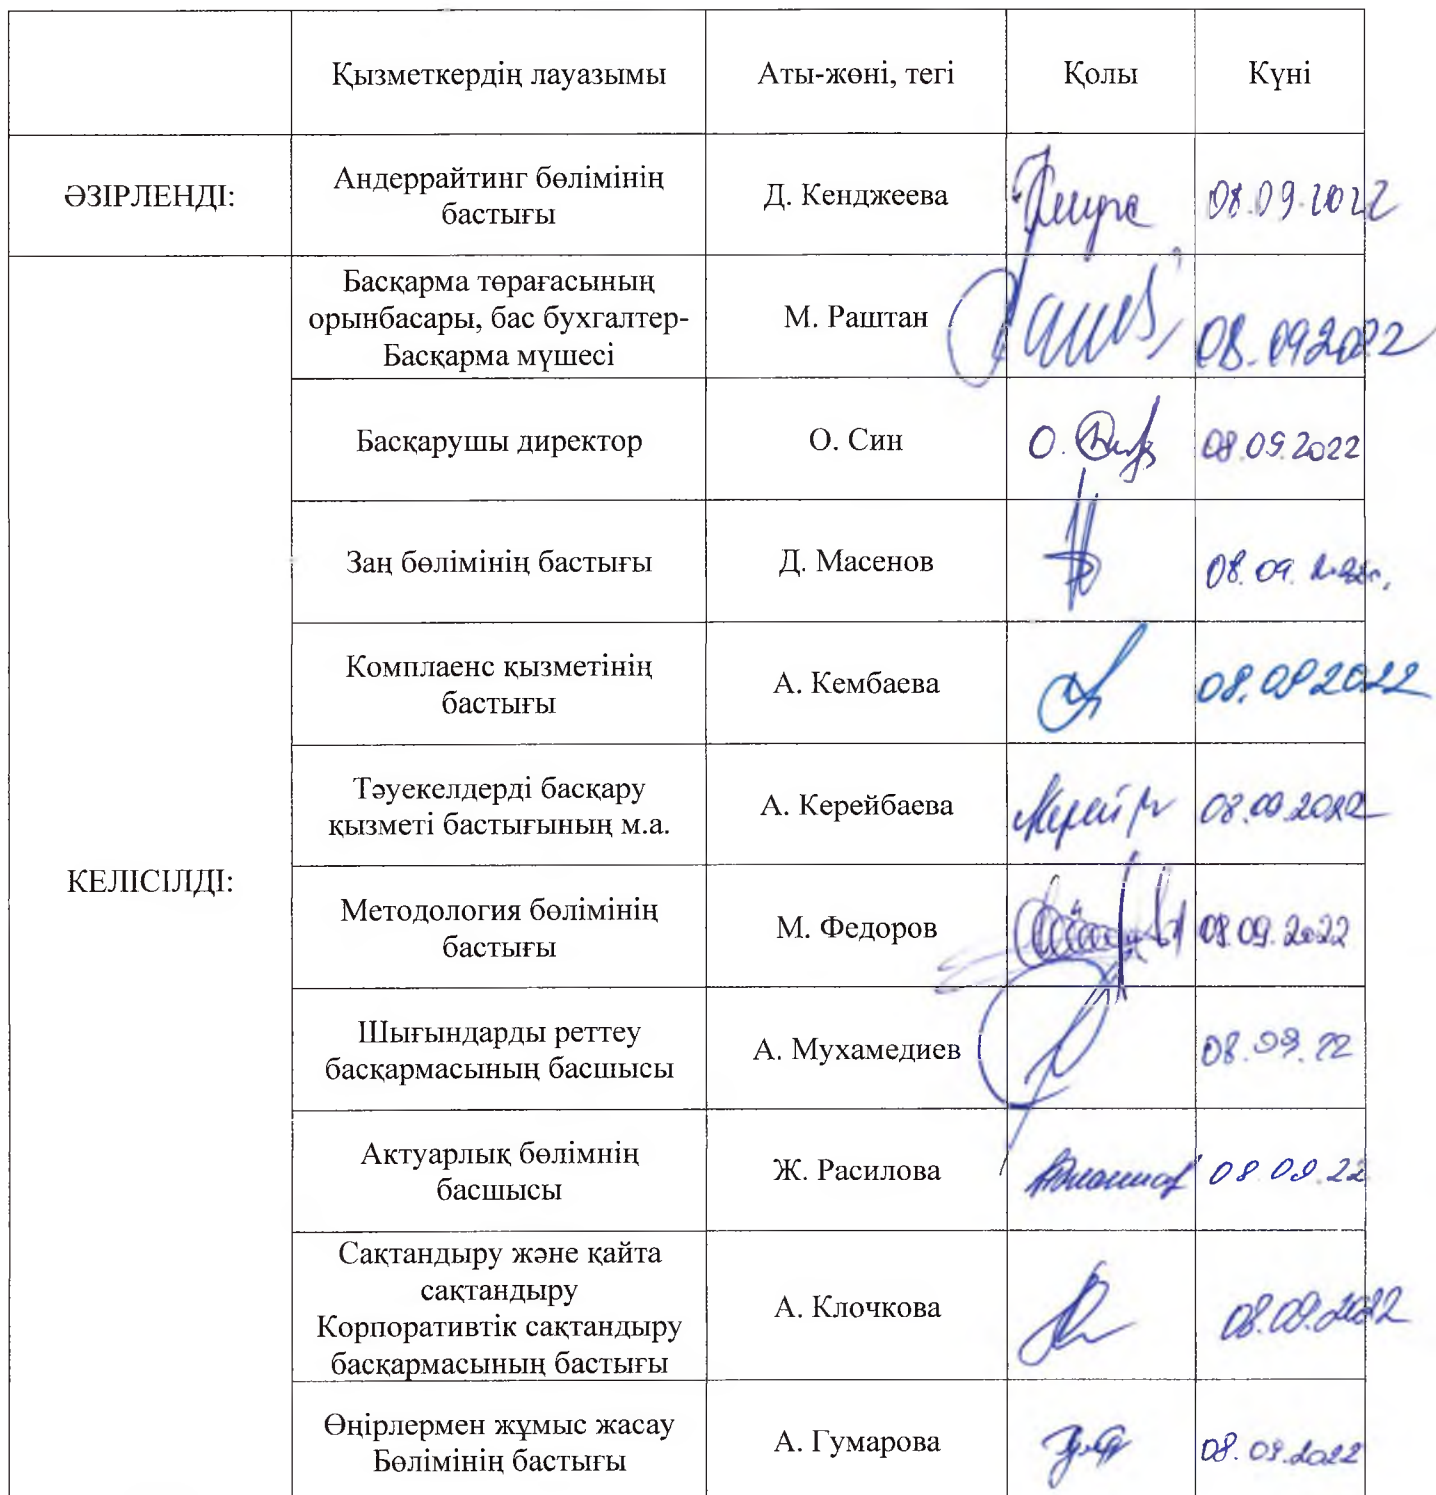 Қызметкердің лауазымы Аты-жөні, тегі Қолы Күні
ӘЗІРЛЕНДІ:
Андеррайтинг бөлімінің
бастығы
Д. Кенджеева
08.09.2022
КЕЛІСІЛДІ:
Басқарма төрағасының
орынбасары, бас бухгалтер-
Басқарма мүшесі
М. Раштан
08.09.2022
Басқарушы директор
О. Син
08.09.2022
Заң бөлімінің бастығы
Д. Масенов
08.09.
Комплаенс қызметінің
бастығы
А. Кембаева
08.09.2022
Тәуекелдерді басқару
қызметі бастығының м.а.
А. Керейбаева
08.09.2022
Методология бөлімінің
бастығы
М. Федоров
08.09.2022
Шығындарды реттеу
басқармасының басшысы
А. Мухамедиев
08.09.22
Актуарлық бөлімнің
басшысы
Ж. Расилова
08.09.22
Сақтандыру және қайта
сақтандыру
Корпоративтік сақтандыру
басқармасының бастығы
А. Клочкова
08.09.2022
Өңірлермен жұмыс жасау
Бөлімінің бастығы
А. Гумарова
08.09.2022